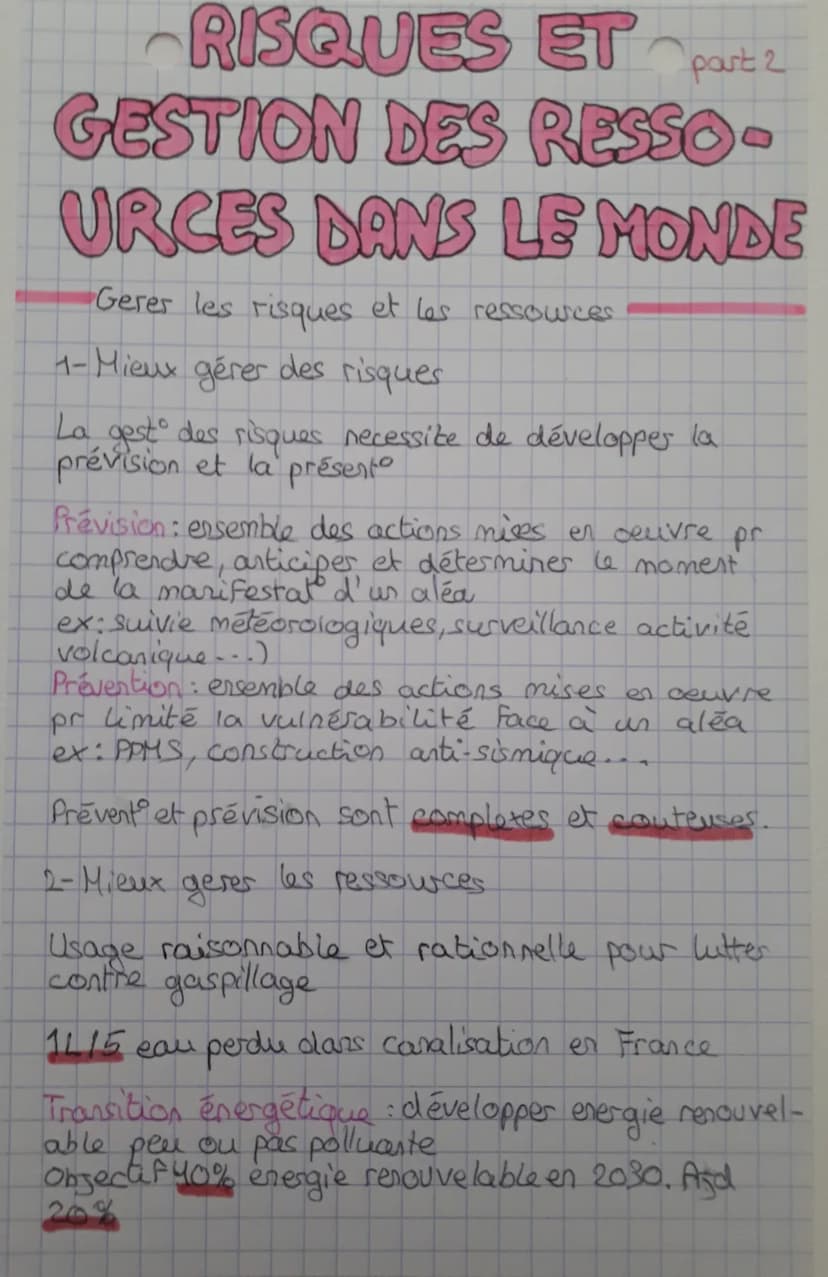 RISQUES ET part 2
GESTION DES RESSO-
URCES DANS LE MONDE
Gerer les risques et les ressources
1- Mieux gérer des risques
La gest° des risques necessite de développer la
prévision et la présent°
Prévision : ensemble des actions mises en oeuvre pr
comprendre, anticiper et déterminer le moment
de la manifestat° d'un aléa
ex : suivie météorologiques, surveillance activité
volcanique...)
Prévention : ensemble des actions mises en oeuvre
pr limité la vulnérabilité face à un aléa
ex : PPMS, construction anti-sismique...
Prévent° et prévision sont complexes et couteuses.
2- Mieux gerer les ressources
Usage raisonnable et rationnelle pour lutter
contre gaspillage
1L/5 eau perdu dans canalisation en France
Transition énergétique : développer energie renouvel-
able peu ou pas polluante
Objectif 40% énergie renouvelable en 2030. Ajd
20%